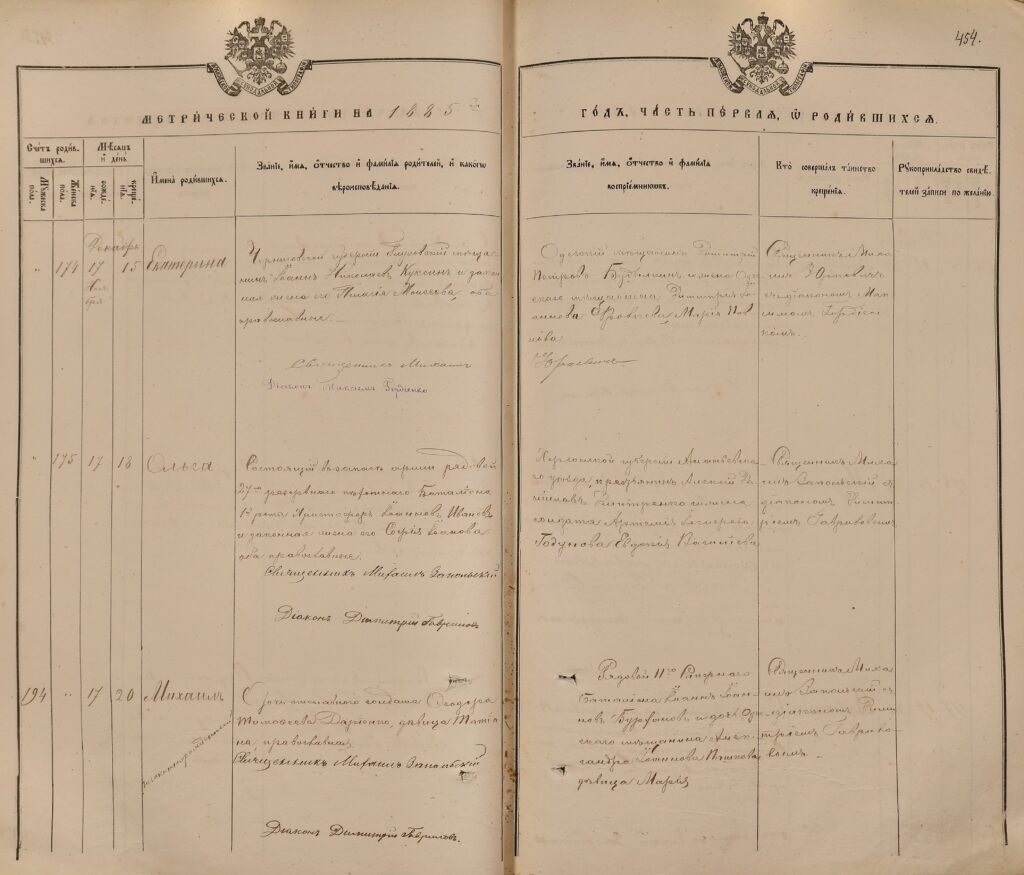 454.
МЕТРИ́ЧЕСКОЙ КНИ́ГИ НА 1885й
ГО́ДЪ, ЧА́СТЬ ПЕ́РВАЯ, Ѿ РОДИ́ВШИХСЯ.
Счетъ родив-
шихся.
Мужеска
пола.
Женска
пола.
Мѣсяцъ
и день
рожде-
нія.
креще-
нія.
Имена родившихся.
Званіе, имя, отчество и фамилія родителей, и какого
вѣроисповѣданія.
Званіе, имя, отчество и фамилія
воспріемниковъ.
Кто совершалъ таинство
крещенія.
Рукоприкладство свидѣ-
телей записи по желанію.
Декабрь
„ 174 17 15 Екатерина
Ноя
бря
Черниговской губерніи Глуховскій мѣща-
нинъ Іоаннъ Николаевъ и закон
ная жена его Моисеева, оба
православные.
Священникъ Михаилъ
Діаконъ Максимъ
Одесскій мѣщанинъ Димитрій
и жена Оде
сскаго мѣщанина Димитрія Іо
аннова Марія Пав
лова
Священникъ Миха
илъ съ
діакономъ Мак
симомъ
„ 175 17 18 Ольга
Состоящій въ запасѣ арміи рядовой
27го резервнаго пѣхотнаго баталіона
1й роты Христофоръ Іоанновъ Ивановъ
и законная жена его Софія Іоанова
оба православные.
Священникъ Михаилъ Запольскій
Діаконъ Димитрій Гавриловъ
Херсонской губерніи Ананьевска
го уѣзда, крестьянинъ Алексій
Димитренко и жена
солдата Артемія
Годунова Евдокія Васильева
Священникъ Миха
илъ Запольскій съ
діакономъ Димит
ріемъ Гавриловымъ
194 „ 17 20 Михаилъ
незаконнорожденный
Дочь отставного солдата Ѳеодора
Тимоѳеева дѣвица Татіа
на, православная
Священникъ Михаилъ Запольскій
Діаконъ Димитрій Гавриловъ.
Рядовой 11го Сапернаго
баталіона Іоаннъ Іоан
новъ и дочь Оде
сскаго мѣщанина Алек
сандра
дѣвица Марія
Священникъ Миха
илъ Запольскій съ
діакономъ Дими
тріемъ Гаврило-
вымъ.